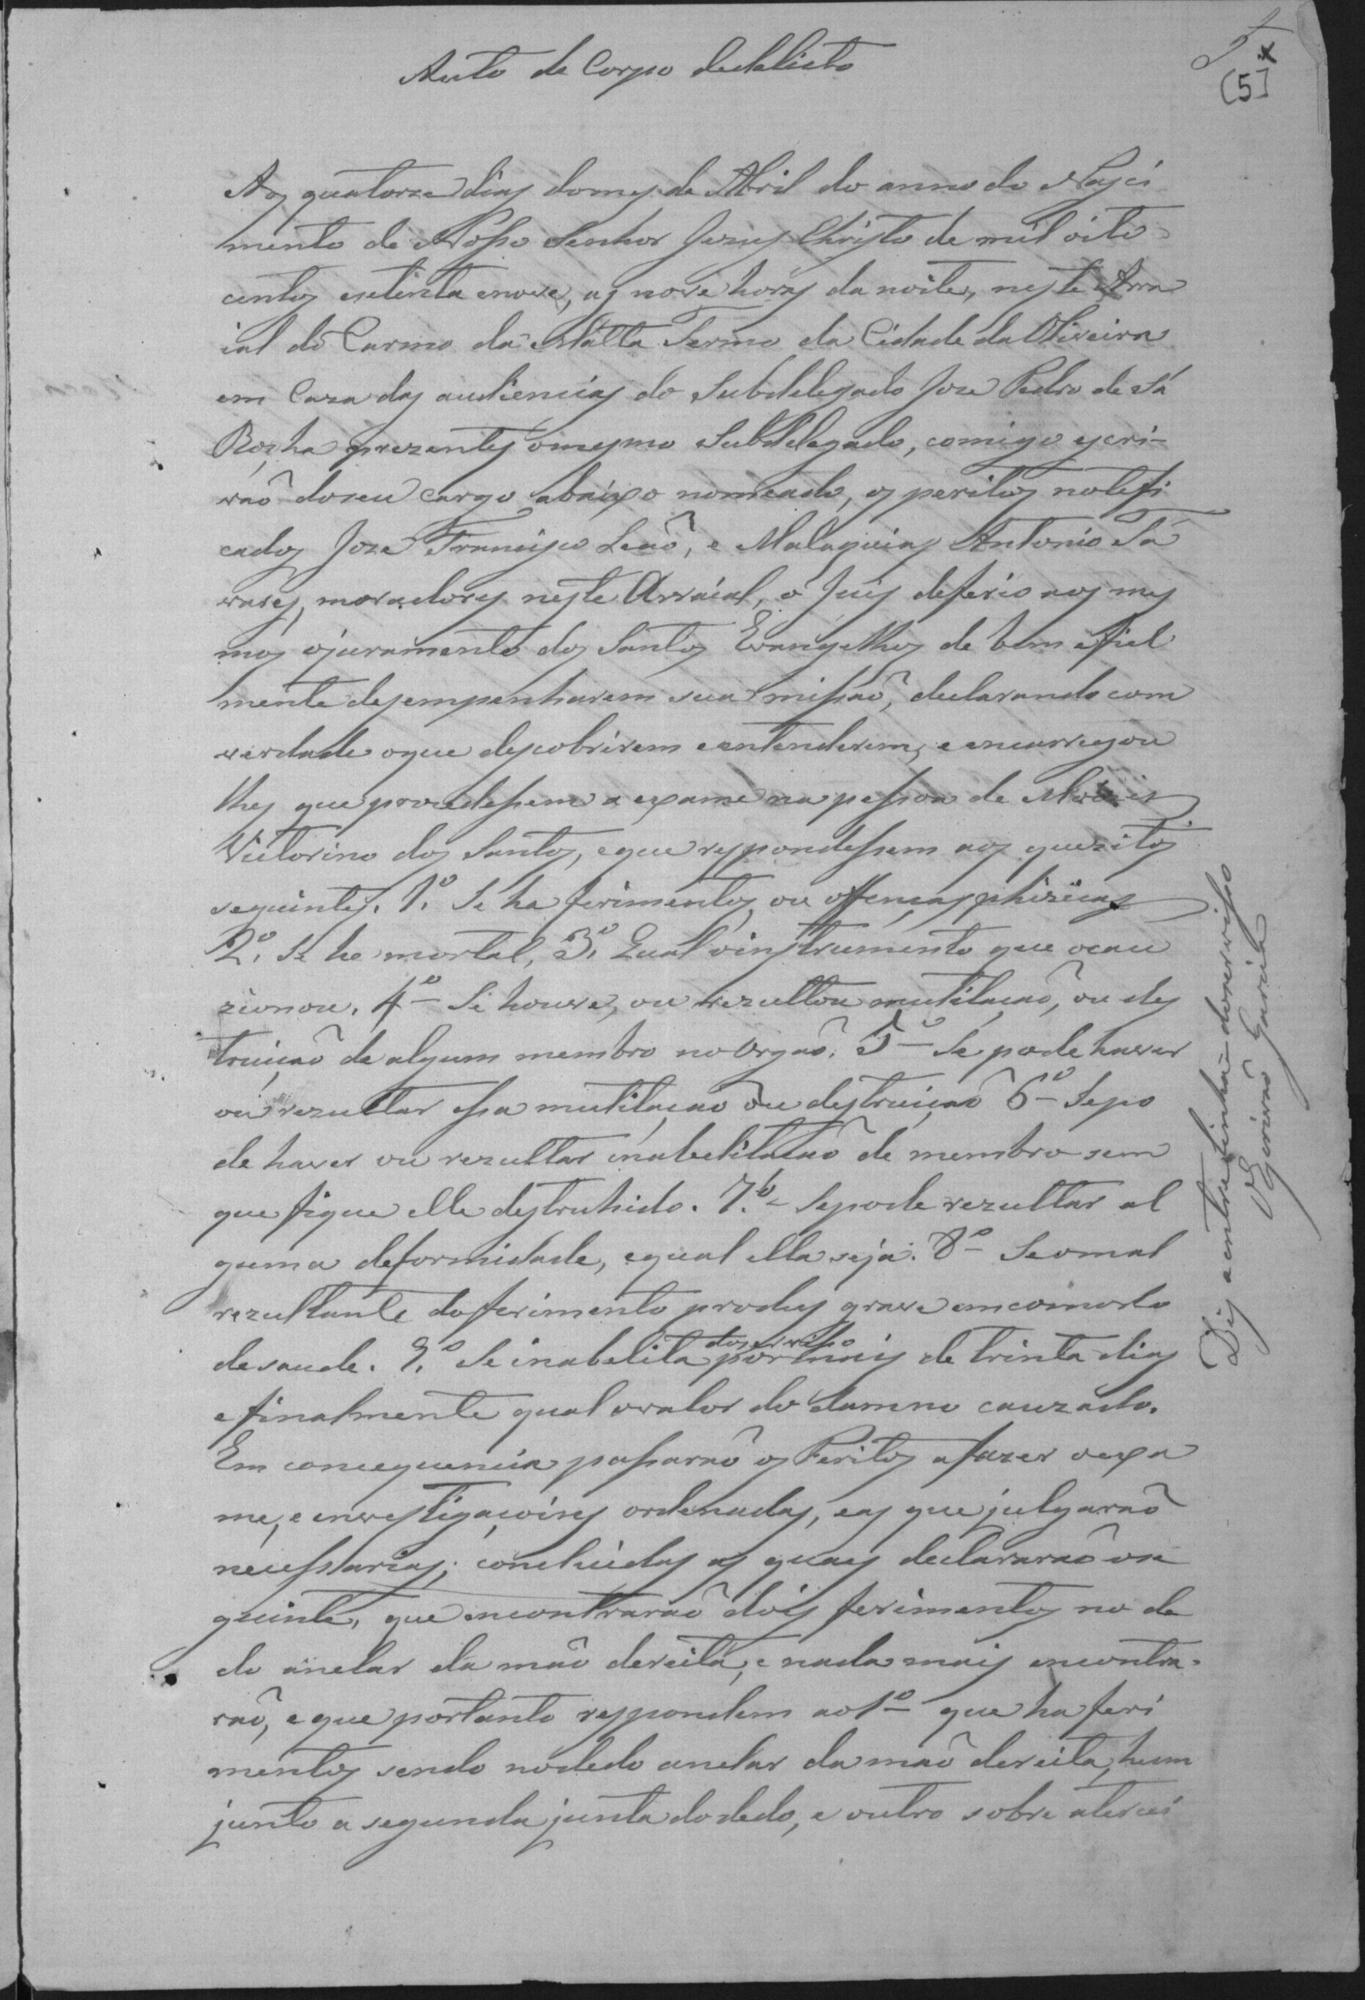 5
[5]
Auto de Corpo dedelicto
Aos quatorze dias domes de Abril do anno do Nasci
mento de Nosso Senhor Jezus Christo de mil oito
centos esetenta enove, as nove horas da noite, neste Arra
ial do Carmo da Matta Termo da Cidade da Oliveira
em Caza das audiencias do Subdelegado Joze Pedro de Sá
Rocha prezentes omesmo Subdelegado, comigo escri-
vaõ doseu cargo abaixo nomeado, os peritos notefi
cados Joze Francisco Leaõ, e Malaquias Antonio Ta
vares, moradores neste Arraial, o Juis deferio aos mes
mos ojuramento dos Santos Evangelhos de bem efiel
mente desempenharem sua missaõ, declarando com
verdade oque descobrirem eentenderem, e encarregou
lhes que procedessem a exame na pessoa de
Victorino dos Santos, eque respondessem aos quezitos
seguintes. 1.º Se ha ferimentos, ou offenças phizicas
2º. Se he mortal, 3º. Qual oinstrumento que ocau
zionou. 4º Se houve, ou rezultou mutilaçaõ, ou des
truiçaõ de algum membro no orgaõ. 5º Se pode haver
ou rezultar essa mutilaçaõ ou destruiçaõ 6º Sepo
de haver ou rezultar inabelitaçaõ de membro sem
que fique elle destruhido. 7.º Sepode rezultar al
guma deformidade, equal ella seja. 8º Seomal
rezultante doferimento produs grave emcomodo
desaude. 9.º Se inabelita doserviço por mais de trinta dias
efinalmente qual ovalor do damno cauzado.
Em concequencia passaraõ os Peritos afazer oexa
me, e investigaçoins ordenadas, eas que julgaraõ
necessarias; concluidas as quaes declararaõ ose
guinte, que encontraraõ dois ferimentos no de
do anelar da maõ dereita, e nada mais encontra-
raõ, e que portanto respondem ao 1º que ha feri
mentos sendo nodedo anelar da maõ dereita, hum
junto a segunda junta dodedo, e outro sobre aterci
Dis a entre linha - doserviço
O Escrivaõ Garcia